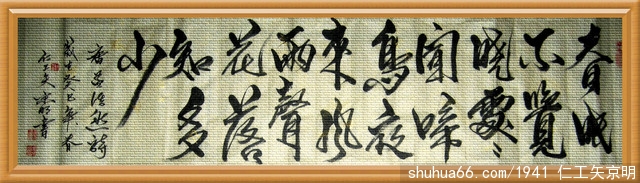 春眠
不覺
曉處々
聞啼
鳥夜
來風
雨聲
花落
知多
少
孟浩然詩
癸巳年春
shuhua66.com/1941 仁工矢京明